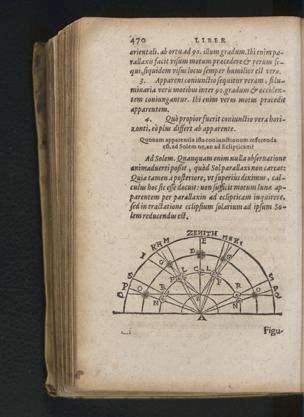 470 LIBER
orientali. ab ortu ad 90. illum gradum. Ibi enim pa-
rallaxis facit visum motum præcedere & verum se-
qui, siquidem visus locus semper humilior est vero.
3. Apparens coniunctio sequitur veram, si lu-
minaria verè moribus inter 90. gradum & occiden-
tem coniungantur. Ibi enim verus motus præcedit
apparentem.
4. Quò propior fuerit coniunctio vera hori-
zonti, eò plus differt ab apparente.
Quonam apparentia ista coniunctionum referenda
est, ad Solem ne, an ad Eclipticam?
Ad Solem. Quanquam enim nulla observatione
animadverti possit, quòd Sol parallaxi non careat:
Quia tamen à posteriore, vt superiùs diximus, cal-
culus hoc sic esse docuit: non sufficit motum lunæ ap-
parentem per parallaxin ad eclipticam inquirere,
sed in tractatione eclipsium solarium ad ipsum So-
lem reducendus est.
ZENITH
A
Figu-